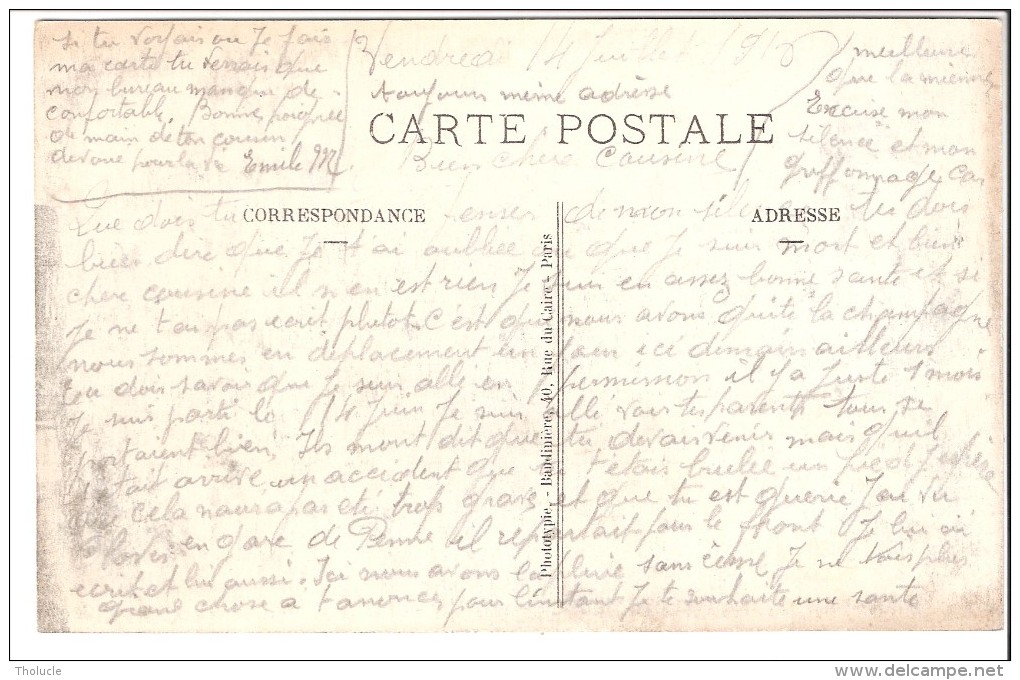 Vendredi 14 Juillet 191
toujour même adresse
CARTE POSTALE
Bien chere Cousine
CORRESPONDANCE
ADRESSE
Que dois tu penser de mon silence tu dois
bien dire que Je t'ai oubliee ou que Je suis mort et bien
chere cousine il n'en est rien Je suis en assez bonne santé et si
Je ne t'ai pas ecrit plutot C'est que nous avons quité la champagne
nous sommes en deplacement un jour ici demain ailleurs
tu dois savoir que Je suis allé en permission il y a Juste 1 mois
Je suis parti le 14 Juin Je suis allé voir tes parents tous se
portaient bien, Ils m'ont dit que tu devais venir mais qu'il
etait arrivé un accident que tu t'etais brulee un pied J'espère
que cela naura pas eté trop grave et que tu est guerie J'ai vu
en gare de Penne il repartait pour le front Je lui ai
ecrit et lui aussi. Ici nous avons la pluie sans cesse Je ne vois plus
grand chose a t'anoncer pour l'instant Je te souhaite une santé
meilleure
que la mienne
Excuse mon
silence et mon
griffonnage car
si tu voyais ou Je fais
ma carte tu verrais que
mon bureau manque de
confortable. Bonne poignee
de main de ton cousin
devoué pour la vie Emile M.
Phototypie. - Baudinière, 40, Rue du Caire - Paris
Tholucle
www.delcampe.net